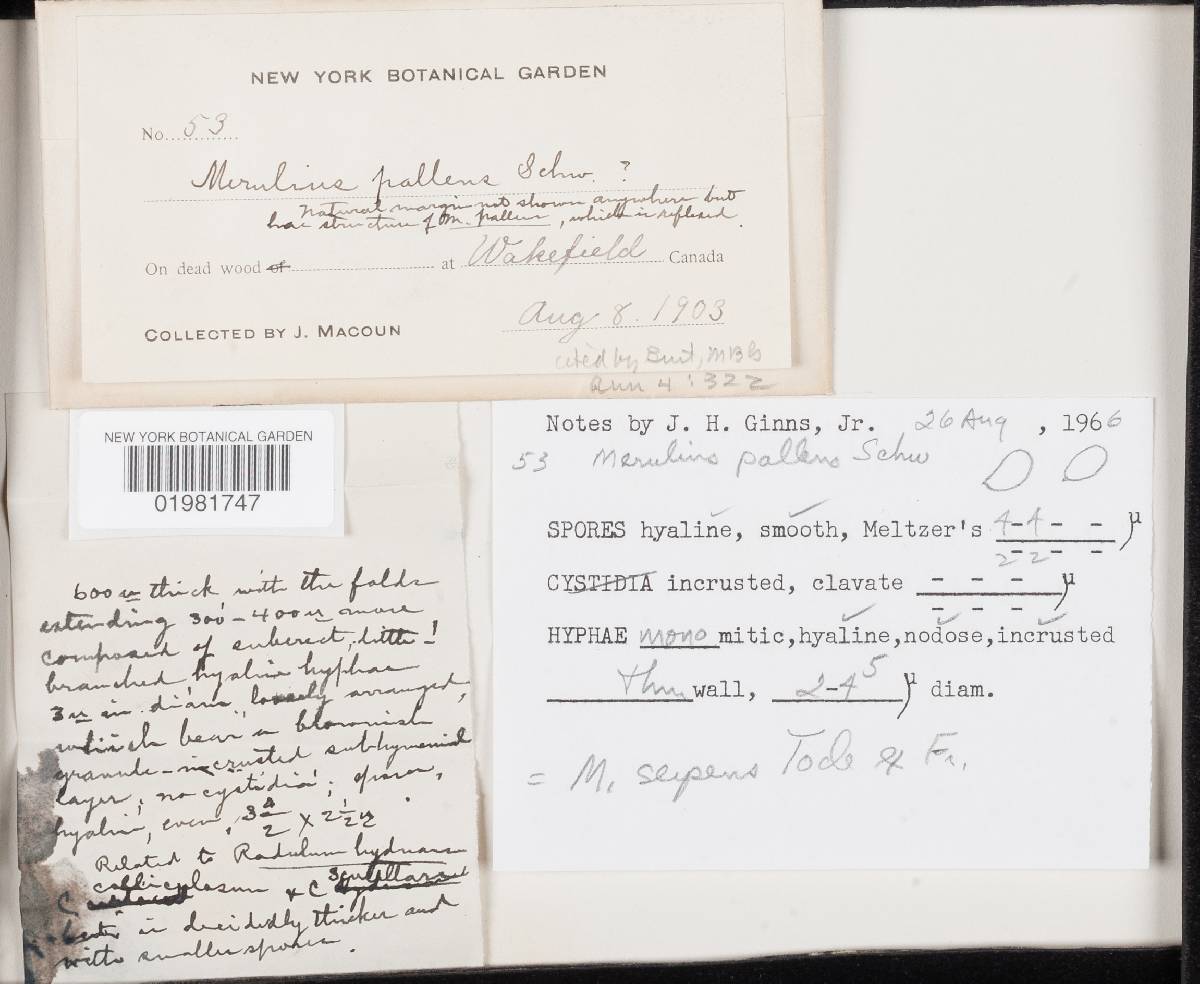 NEW YORK BOTANICAL GARDEN
No. 53
Merulius pallens Schw. ?
Natural margin not shown anywhere but
has structure of M. pallens, which is reflexed.
On dead wood of at Wakefield Canada
COLLECTED BY J. MACOUN
Aug 8. 1903
cited by Burt, MBG
Ann 4:322
NEW YORK BOTANICAL GARDEN
01981747
600 u thick with the folds
extending 300-400 u more
composed of suberect, little-
branched hyaline hyphae
3 u in diam, loosely arranged,
which bear a brownish
granule-incrusted subhymenial
layer; no cystidia; spores,
hyaline, even, 3 x 2½ u
Related to Radulum hydnans
C colliculosum & C scutellare
is decidedly thicker and
with smaller spores.
Notes by J. H. Ginns, Jr. 26 Aug, 1966
53 Merulius pallens Schw
SPORES hyaline, smooth, Meltzer's 4-4 - - µ
2-2- -
CYSTIDIA incrusted, clavate - - - µ
- - -
HYPHAE mono mitic, hyaline, nodose, incrusted
thin wall, 2-4 5 µ diam.
= M. serpens Tode ex Fr.